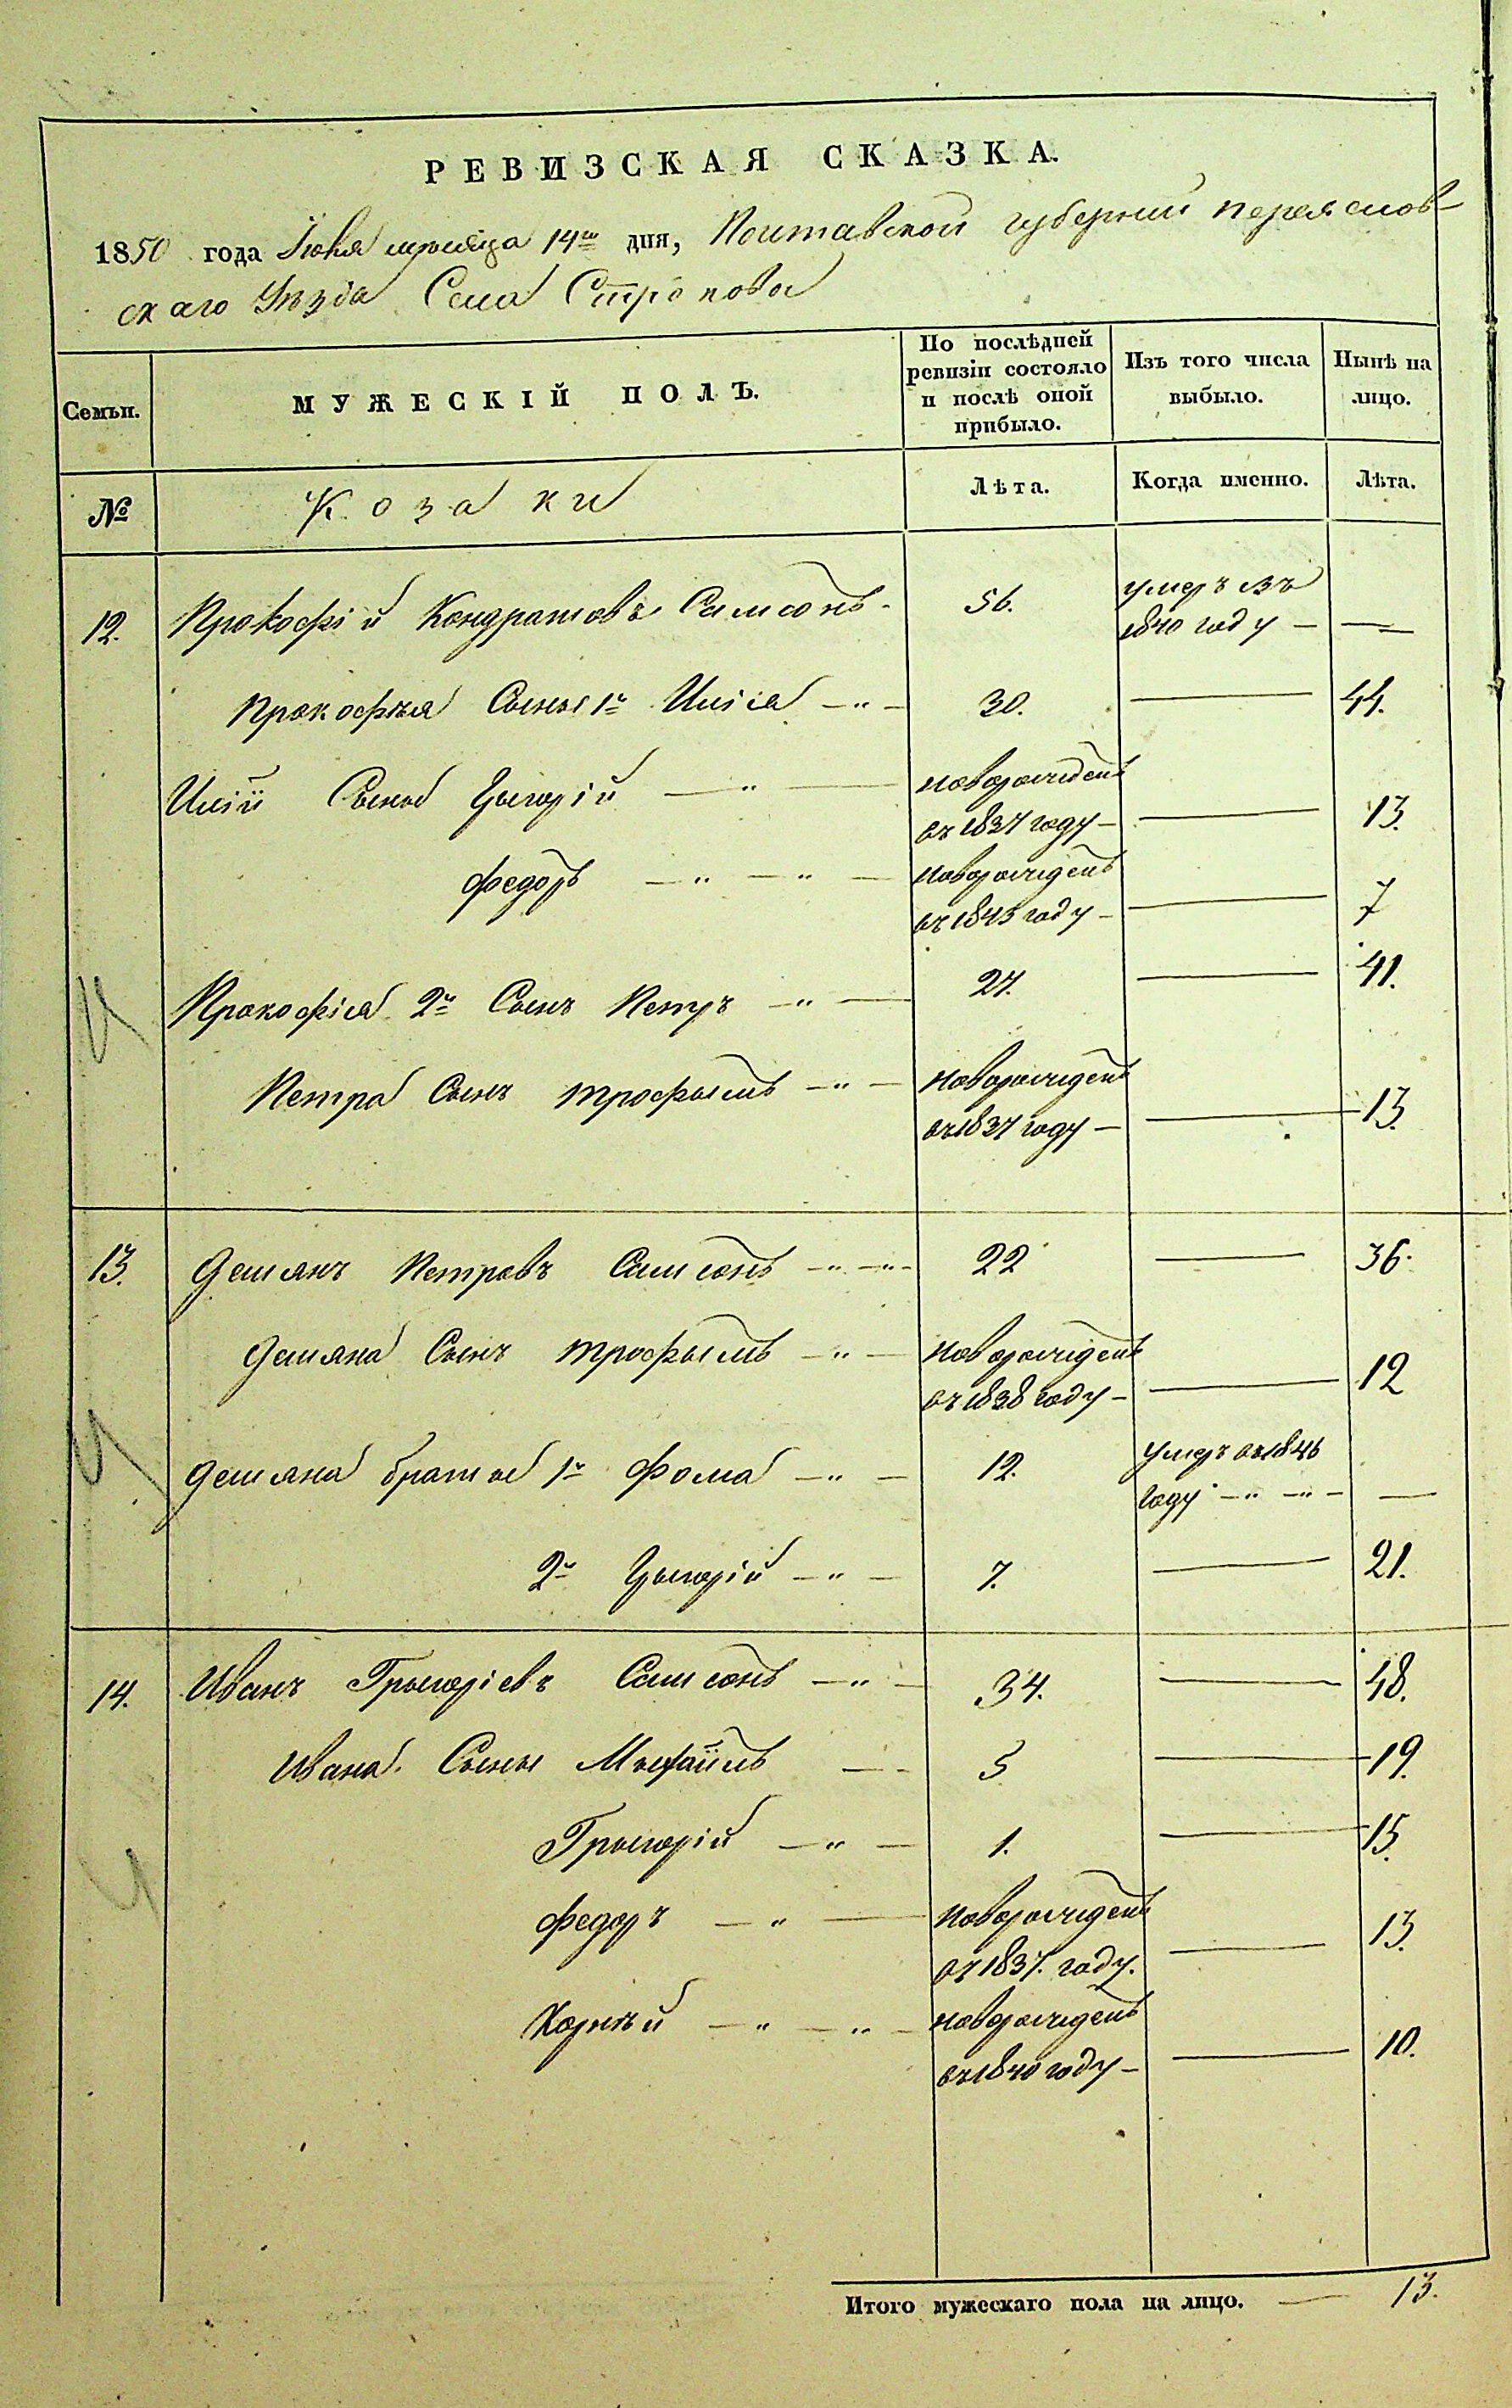 РЕВИЗСКАЯ СКАЗКА.
1850 года Июня мѣсяца 14го дня, Полтавской губернии Переяслов-
скаго Уѣзда Села Строкова
Семьи. МУЖЕСКІЙ ПОЛЪ. По послѣдней ревизіи состояло и послѣ оной прибыло. Изъ того числа выбыло. Нынѣ на лицо.
№ Козаки Лѣта. Когда именно. Лѣта.
12. Прокофій Кондратовъ Самсонъ 56. умеръ въ 1840 году — —
Прокофія Сыны 1й Илія —"— 30. — 44.
Иліи Сыны Григорій —"— новорожденъ въ 1837 году — — 13.
Федоръ —"—"— новорожденъ въ 1843 году — — 7
Прокофія 2й Сынъ Петръ —"— 27. — 41.
Петра Сынъ Трофымъ —"— новорожденъ въ 1837 году — — 13.
13. Демянъ Петровъ Самсонъ —"—"— 22 — 36.
Демяна Сынъ Трофымъ —"— новорожденъ въ 1838 году — — 12
Демяна братья 1й Фома —"— 12. умеръ въ 1846 году —"—"— —
2й Григорій —"— 7. — 21.
14. Иванъ Григоріевъ Самсонъ —"— 34. — 48.
Ивана Сыны Михаилъ — 5 — 19.
Григорій —"— 1. — 15.
Федоръ —"— новорожденъ въ 1837. году. — 13.
Корнѣй —"—"— новорожденъ въ 1840 году — — 10.
Итого мужескаго пола на лицо. — 13.